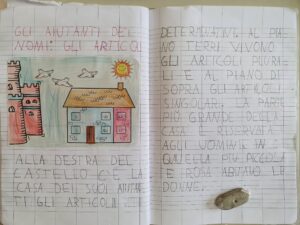 GLI AIUTANTI DEI
NOMI: GLI ARTICOLI
ALLA DESTRA DEL
CASTELLO C'È LA
CASA DEI SUOI AIUTAN
TI GLI ARTICOLI
DETERMINATIVI. AL PIA
NO TERRA VIVONO
GLI ARTICOLI PLURA
LI E AL PIANO DI
SOPRA GLI ARTICOLI
SINGOLARI. LA PARTE
PIÙ GRANDE DELLA
CASA È RISERVATA
AGLI UOMINI E IN
QUELLA PIÙ PICCOLA
E ROSA ABITANO LE
DONNE.